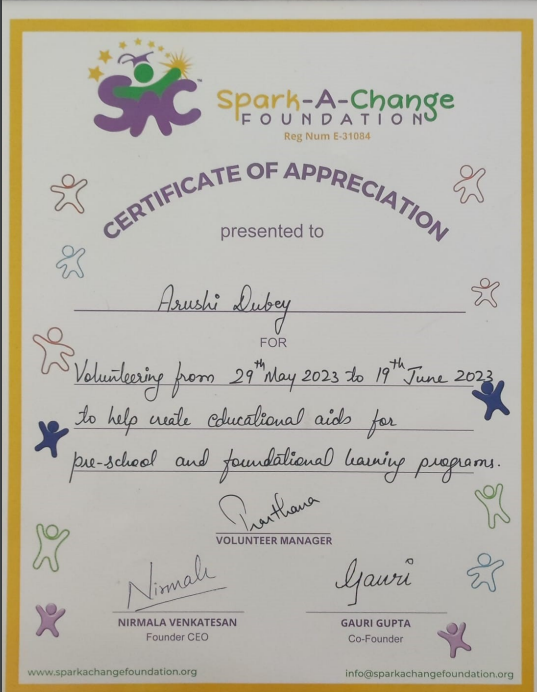 SAC
Spark-A-Change
FOUNDATION
Reg Num E-31084
CERTIFICATE OF APPRECIATION
presented to
Arushi Dubey
FOR
Volunteering from 29th May 2023 to 19th June 2023
to help create educational aids for
pre-school and foundational learning programs.
Prarthana
VOLUNTEER MANAGER
Nirmala Gauri
NIRMALA VENKATESAN GAURI GUPTA
Founder CEO Co-Founder
www.sparkachangefoundation.org info@sparkachangefoundation.org